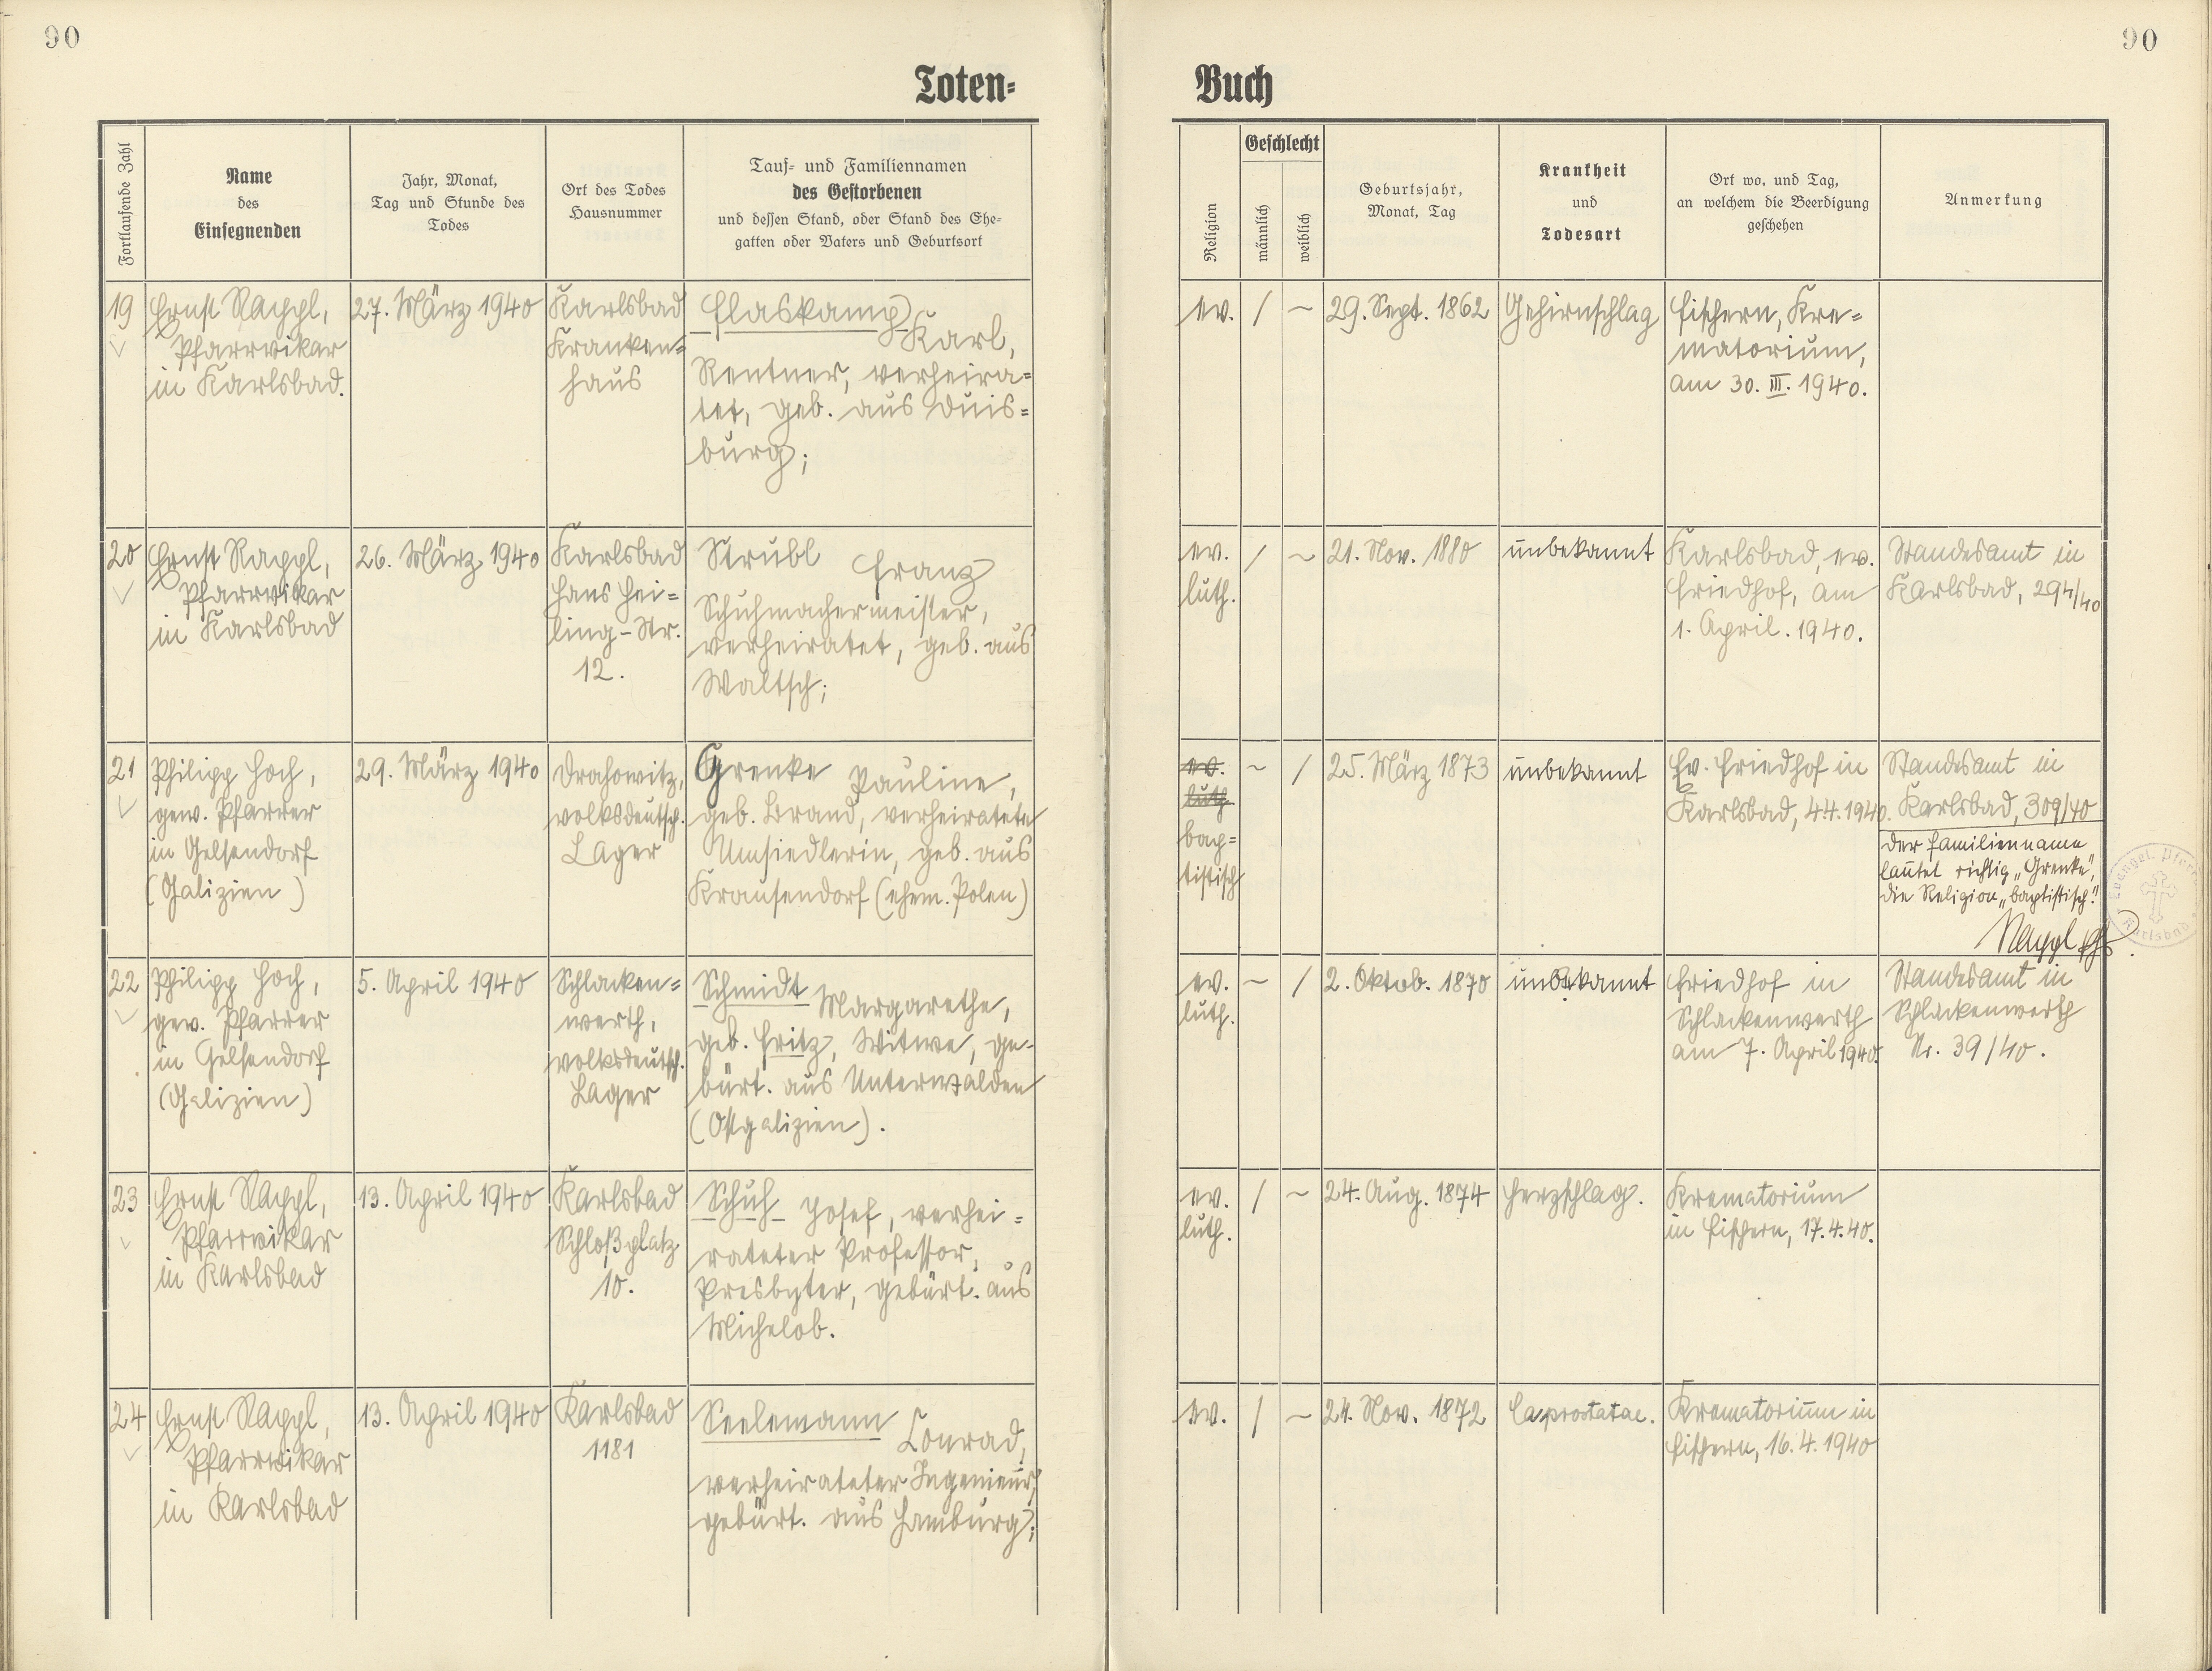 90
90
Toten-
Buch
Fortlaufende Zahl
Name
des
Einsegnenden
Jahr, Monat,
Tag und Stunde des
Todes
Ort des Todes
Hausnummer
Tauf- und Familiennamen
des Gestorbenen
und dessen Stand, oder Stand des Ehe-
gatten oder Vaters und Geburtsort
Religion
Geschlecht
männlich
weiblich
Geburtsjahr,
Monat, Tag
Krankheit
und
Todesart
Ort wo, und Tag,
an welchem die Beerdigung
geschehen
Anmerkung
19
Ernst Rappl,
Pfarrvikar
in Karlsbad.
27. März 1940
Karlsbad
Kranken=
haus
Flaskamp
Karl,
Rentner, verheira=
tet, geb. aus Duis=
burg;
ev.
/
~
29. Sept. 1862
Gehirnschlag
Fischern, Kre=
matorium,
am 30. III. 1940.
20
Ernst Rappl,
Pfarrvikar
in Karlsbad
26. März 1940
Karlsbad
Hans Hei=
ling-Str.
12.
Strubl Franz
Schuhmachermeister,
verheiratet, geb. aus
Waltsch;
ev.
luth.
/
~
21. Nov. 1880
unbekannt
Karlsbad, ev.
Friedhof, am
1. April. 1940.
Standesamt in
Karlsbad, 294/40
21
Philipp Hoch,
gew. Pfarrer
in Gelsendorf
(Galizien)
29. März 1940
Drahowitz,
volksdeutsch.
Lager
Grenke Pauline,
geb. Brand, verheiratete
Umsiedlerin, geb. aus
Krausendorf (ehem. Polen)
ev.
luth.
bap=
tistisch
~
/
25. März 1873
unbekannt
Ev. Friedhof in
Karlsbad, 4.4.1940.
Standesamt in
Karlsbad, 309/40
Der Familienname
lautet richtig „Grenke",
die Religion „baptistisch"
Rappl
Evangel. Pfarr
Karlsbad
22
Philipp Hoch,
gew. Pfarrer
in Gelsendorf
(Galizien)
5. April 1940
Schlacken=
werth,
volksdeutsch.
Lager
Schmidt Margarethe,
geb. Fritz, Witwe, ge-
bürt. aus Unterwalden
(Ostgalizien).
ev.
luth.
~
/
2. Oktob. 1870
unbekannt
Friedhof in
Schlackenwerth
am 7. April 1940.
Standesamt in
Schlackenwerth
Nr. 39/40.
23
Ernst Rappl,
Pfarrvikar
in Karlsbad
13. April 1940
Karlsbad
Schloßplatz
10.
Schuh Josef, verhei=
rateter Professor,
Presbyter, gebürt. aus
Michelob.
ev.
luth.
/
~
24. Aug. 1874
Herzschlag.
Krematorium
in Fischern, 17.4.40.
24
Ernst Rappl,
Pfarrvikar
in Karlsbad
13. April 1940
Karlsbad
1181
Seelemann Conrad,
verheirateter Ingenieur,
gebürt. aus Hamburg;
ev.
/
~
24. Nov. 1872
Ca prostatae.
Krematorium in
Fischern, 16.4.1940